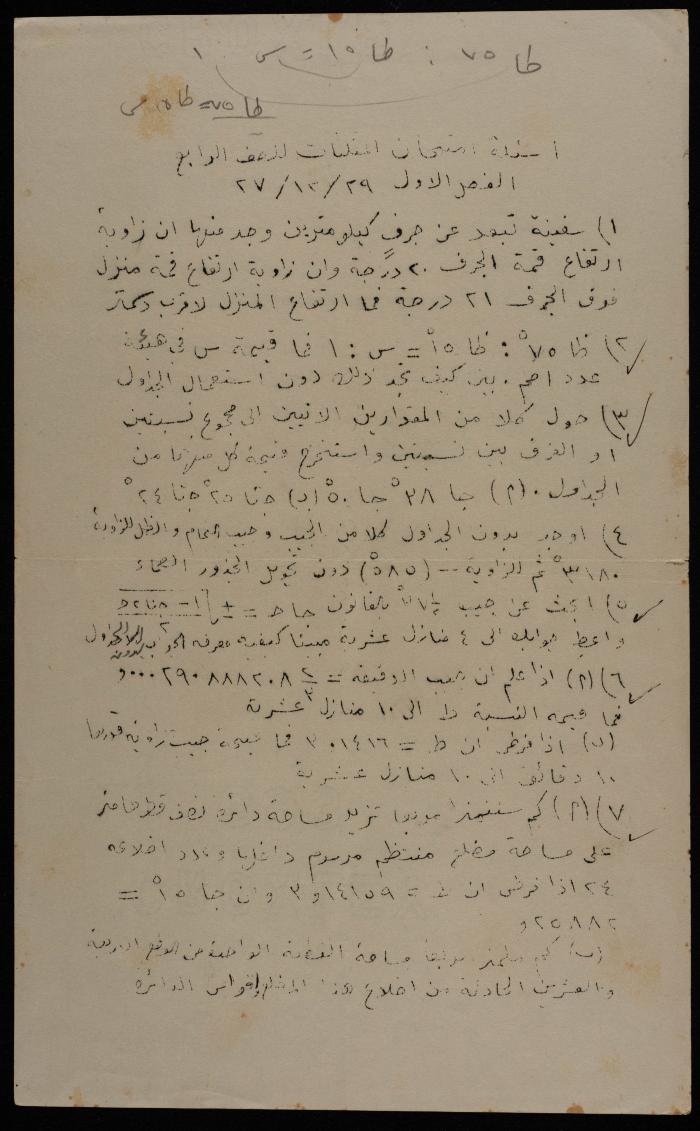 طا ٧٥ : طا ١٥ = س : ١
طا ٧٥ = طا ١٥ س
اسئلة امتحان المثلثات للصف الرابع
الفصل الاول ٢٩/١٢/٢٧
١) سفينة تبعد عن جرف كيلومترين وجد منها ان زاوية
ارتفاع قمة الجرف ٢٠ درجة وان زاوية ارتفاع قمة منزل
فوق الجرف ٢١ درجة فما ارتفاع المنزل لاقرب دسمتر
٢) ظا ٧٥° : ظا ١٥° = س : ١ فما قيمة س في هيئة
عدد اصم . بين كيف تجد ذلك دون استعمال الجداول
٣) حول كلا من المقدارين الاتيين الى مجموع نسبتين
او الفرق بين نسبتين واستخرج قيمة كل منهما من
الجداول . (٢) جا ٣٨° جا ٥٠° (ب) جتا ٢٥° جتا ٢٤°
٤) اوجد بدون الجداول كلا من الجيب وجيب التمام والظل للزاوية
٣١٨٠° ثم للزاوية – (٥٨٥°) دون تحويل الجذور الصماء
٥) ابحث عن جيب ½٧° بالقانون جا حـ = ± √١ – جتا٢حـ
واعط جوابك الى ٤ منازل عشرية مبينا كيفية معرفة الجواب بدون الجداول
٦) (٢) اذا علم ان جيب الدقيقة = ٠٠٠٢٩٠٨٨٨٢٠٨و
فما قيمة النسبة ط الى ١٠ منازل عشرية
(ب) اذا فرض ان ط = ٣٠١٤١٦ فما قيمة جيب زاوية قدرها
١٠ دقائق الى ١٠ منازل عشرية
٧) (٢) كم سنتمترا مربعا تزيد مساحة دائرة نصف قطرها متر
على مساحة مضلع منتظم مرسوم داخلها وعدد اضلاعه
٢٤ اذا فرض ان ط = ١٤١٥٩و٣ وان جا ١٥° =
٢٥٨٨٢و
(ب) كم ملمتر مربعا مساحة القطعة الواحدة من القطع الاربعة
والعشرين الحادثة من اضلاع هذا المضلع واقواس الدائرة